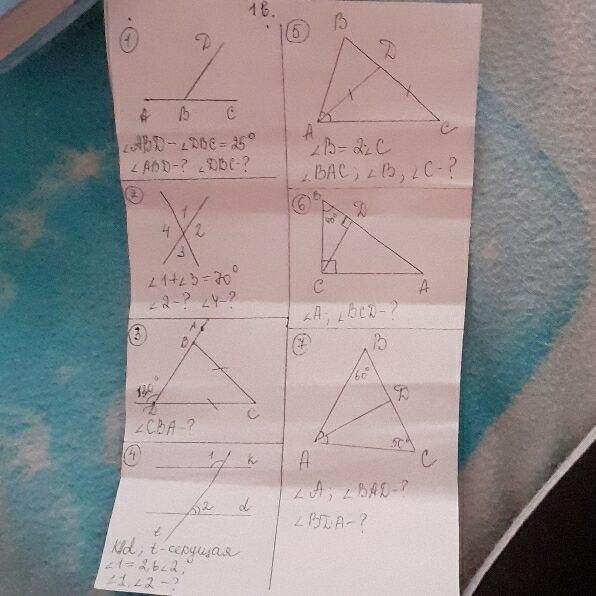 1 в.
1
D
A B C
∠ABD - ∠DBC = 25°
∠ABD-? ∠DBC-?
2
1
4 2
3
∠1+∠3 = 70°
∠2-? ∠4-?
3
A
B
130°
D C
∠CBA-?
4
1 k
2 d
t
k||d; t-секущая
∠1 = 2,6∠2;
∠1, ∠2 -?
5
B
D
A C
∠B = 2∠C
∠BAC; ∠B, ∠C-?
6
B
D
C A
∠A; ∠BCD-?
7
B
60°
D
A C
50°
∠A; ∠BAD-?
∠BDA-?